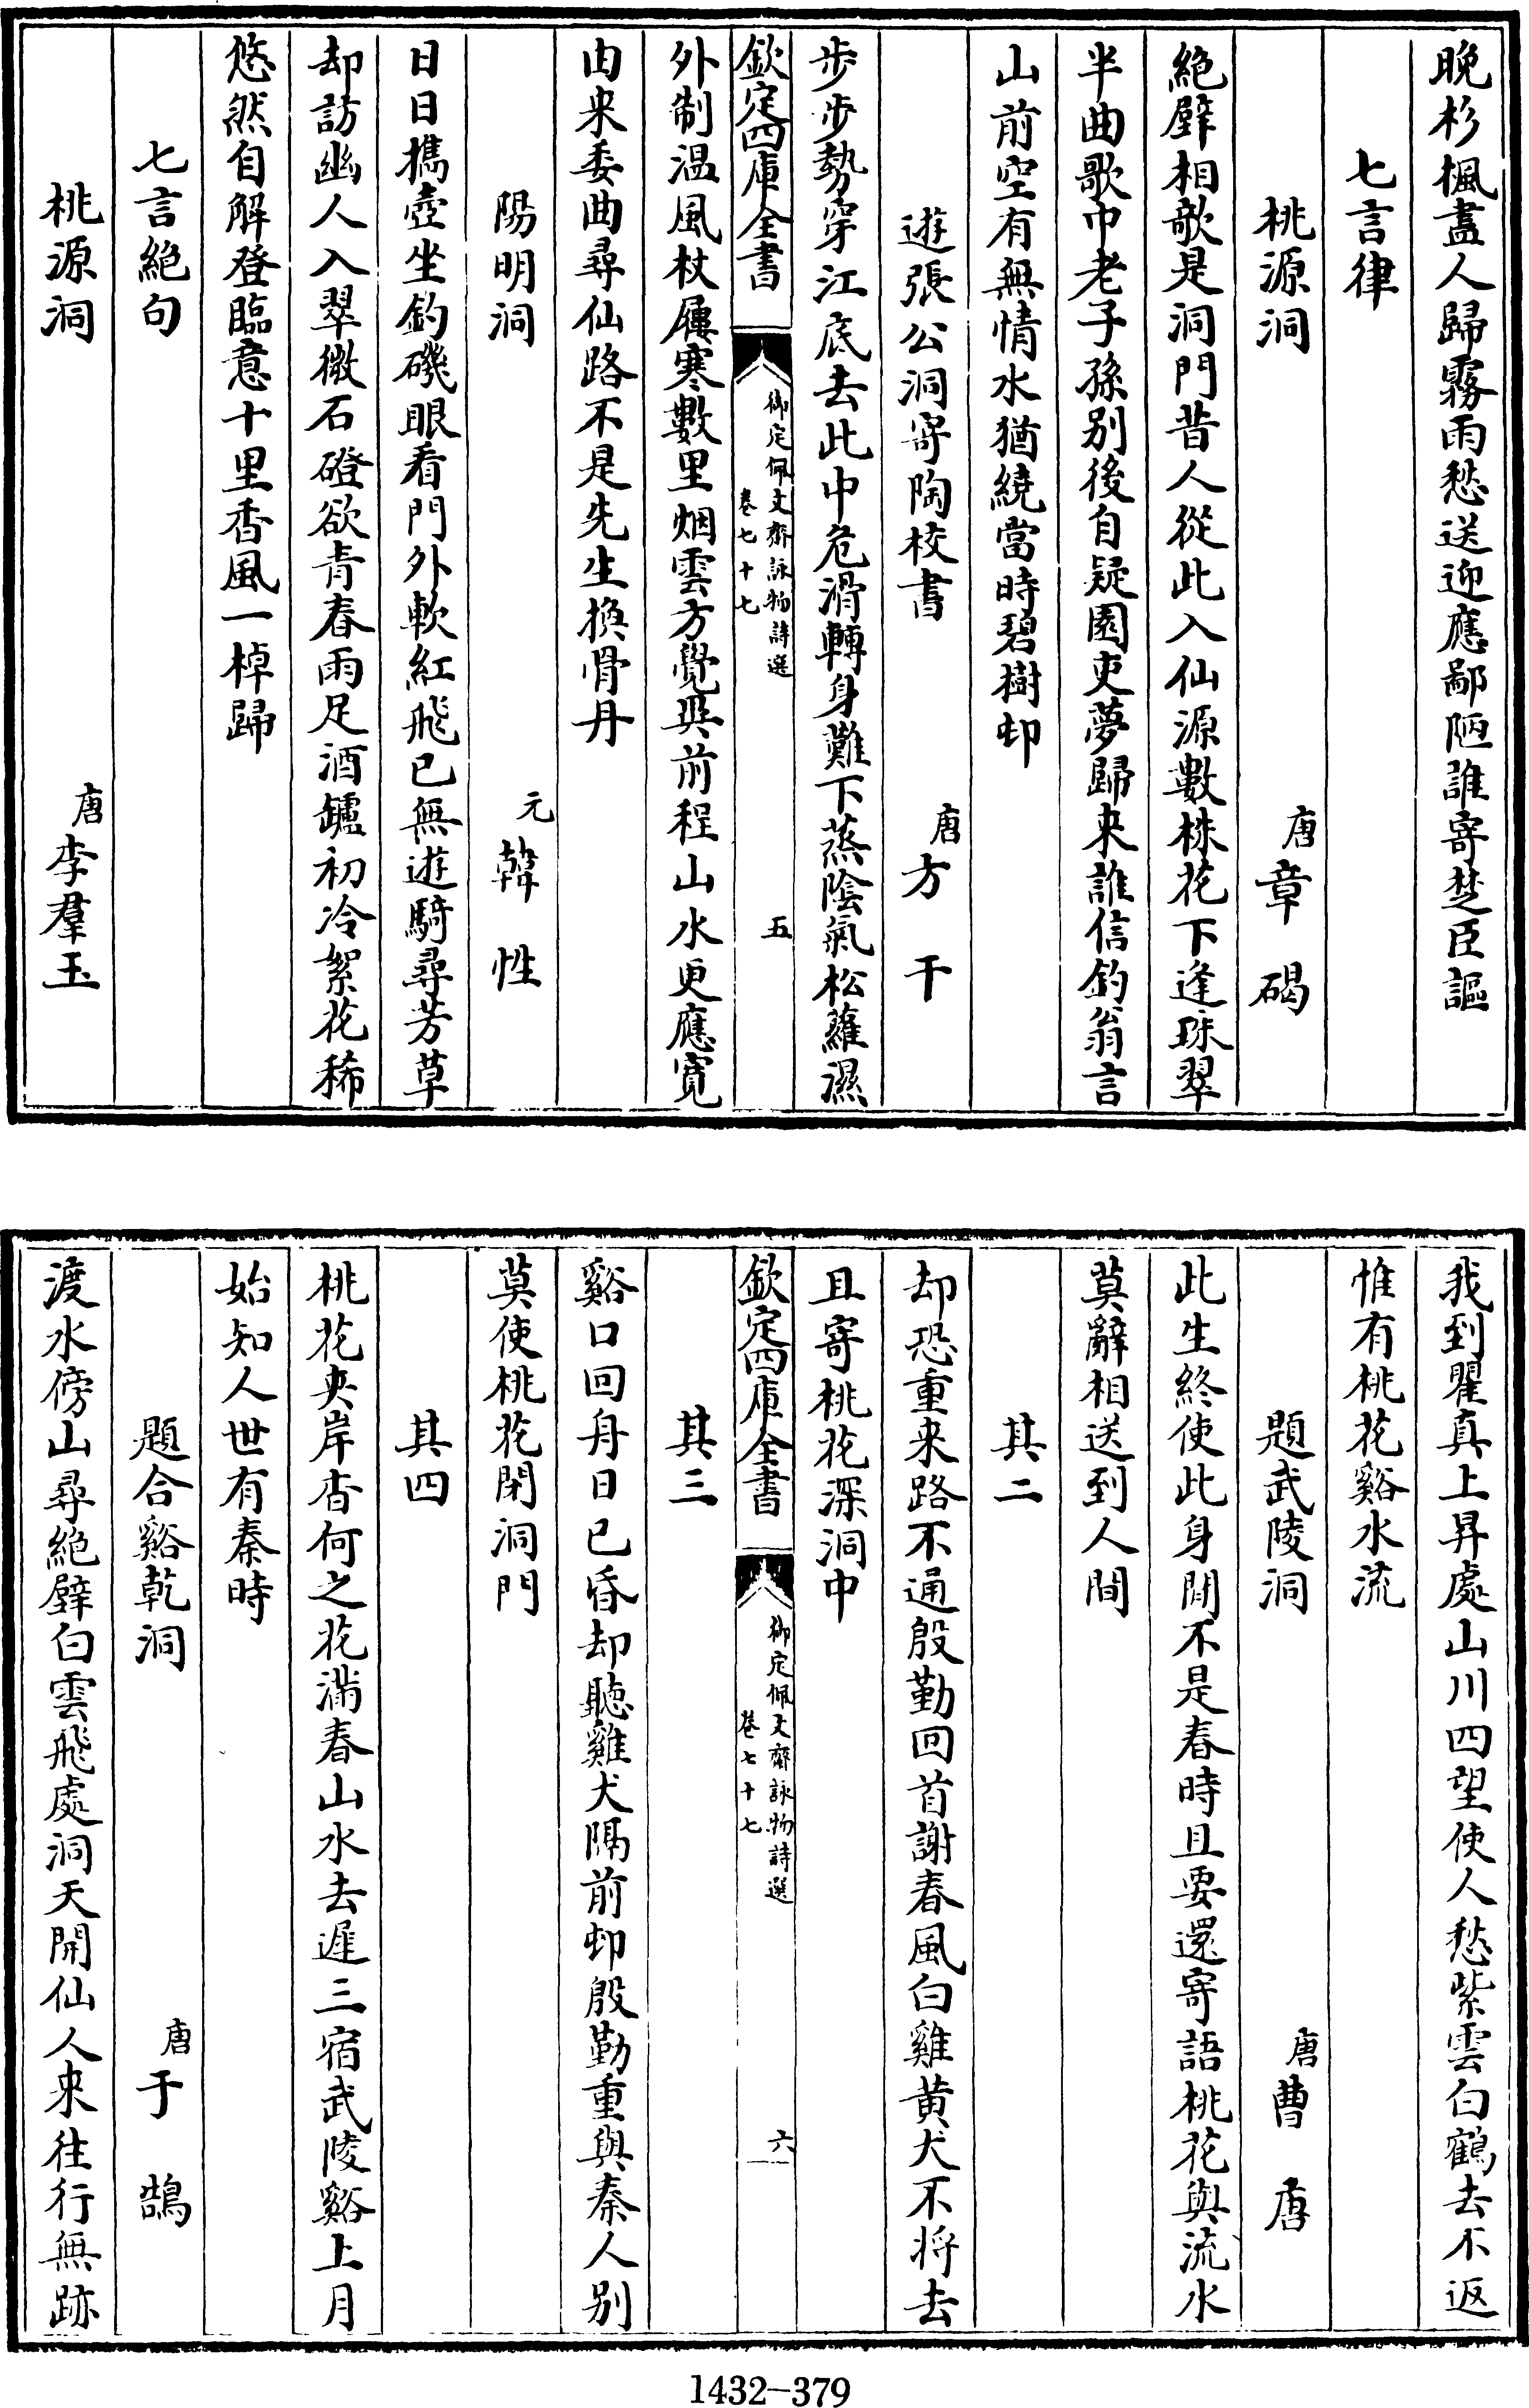 晚杉楓盡人歸霧雨愁送迎應鄙陋誰寄楚臣謳
七言律
桃源洞 唐章碣
絶壁相欹是洞門昔人從此入仙源數株花下逢珠翠
半曲歌中老子孫别後自疑園吏夢歸來誰信釣翁言
山前空有無情水猶繞當時碧樹邨
遊張公洞寄陶校書 唐方干
步步勢穿江底去此中危滑轉身難下蒸陰氣松蘿濕
欽定四庫全書 御定佩文齋詠物詩選 卷七十七 五
外制温風杖屨寒數里烟雲方覺異前程山水更應寛
由来委曲尋仙路不是先生換骨丹
陽明洞 元韓性
日日攜壺坐釣磯眼看門外軟紅飛已無遊騎尋芳草
却訪幽人入翠微石磴欲青春雨足酒罏初冷絮花稀
悠然自解登臨意十里香風一棹歸
七言絶句
桃源洞 唐李羣玉
我到瞿真上昇處山川四望使人愁紫雲白鶴去不返
惟有桃花谿水流
題武陵洞 唐曹唐
此生終使此身閒不是春時且要還寄語桃花與流水
莫辭相送到人間
其二
却恐重来路不通殷勤回首謝春風白雞黄犬不將去
且寄桃花深洞中
欽定四庫全書 御定佩文齋詠物詩選 卷七十七 六
其三
谿口回舟日已昏却聽雞犬隔前邨殷勤重與秦人别
莫使桃花閉洞門
其四
桃花夾岸杳何之花滿春山水去遲三宿武陵谿上月
始知人世有秦時
題合谿乾洞 唐于鵠
渡水傍山尋絶壁白雲飛處洞天開仙人來往行無跡
1432-379